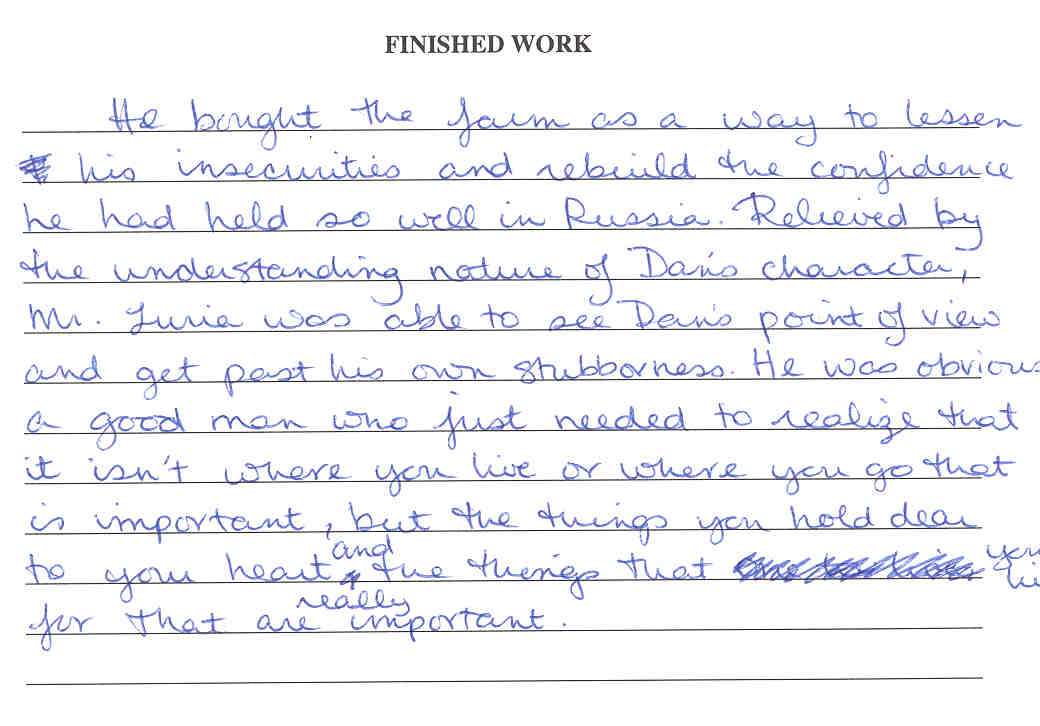 FINISHED WORK
He bought the farm as a way to lessen
his insecurities and rebuild the confidence
he had held so well in Russia. Relieved by
the understanding nature of Dan's character,
Mr. Lurie was able to see Dan's point of view
and get past his own stubborness. He was obvious
a good man who just needed to realize that
it isn't where you live or where you go that
is important, but the things you hold dear
to your heart, and the things that you li
for that are really important.